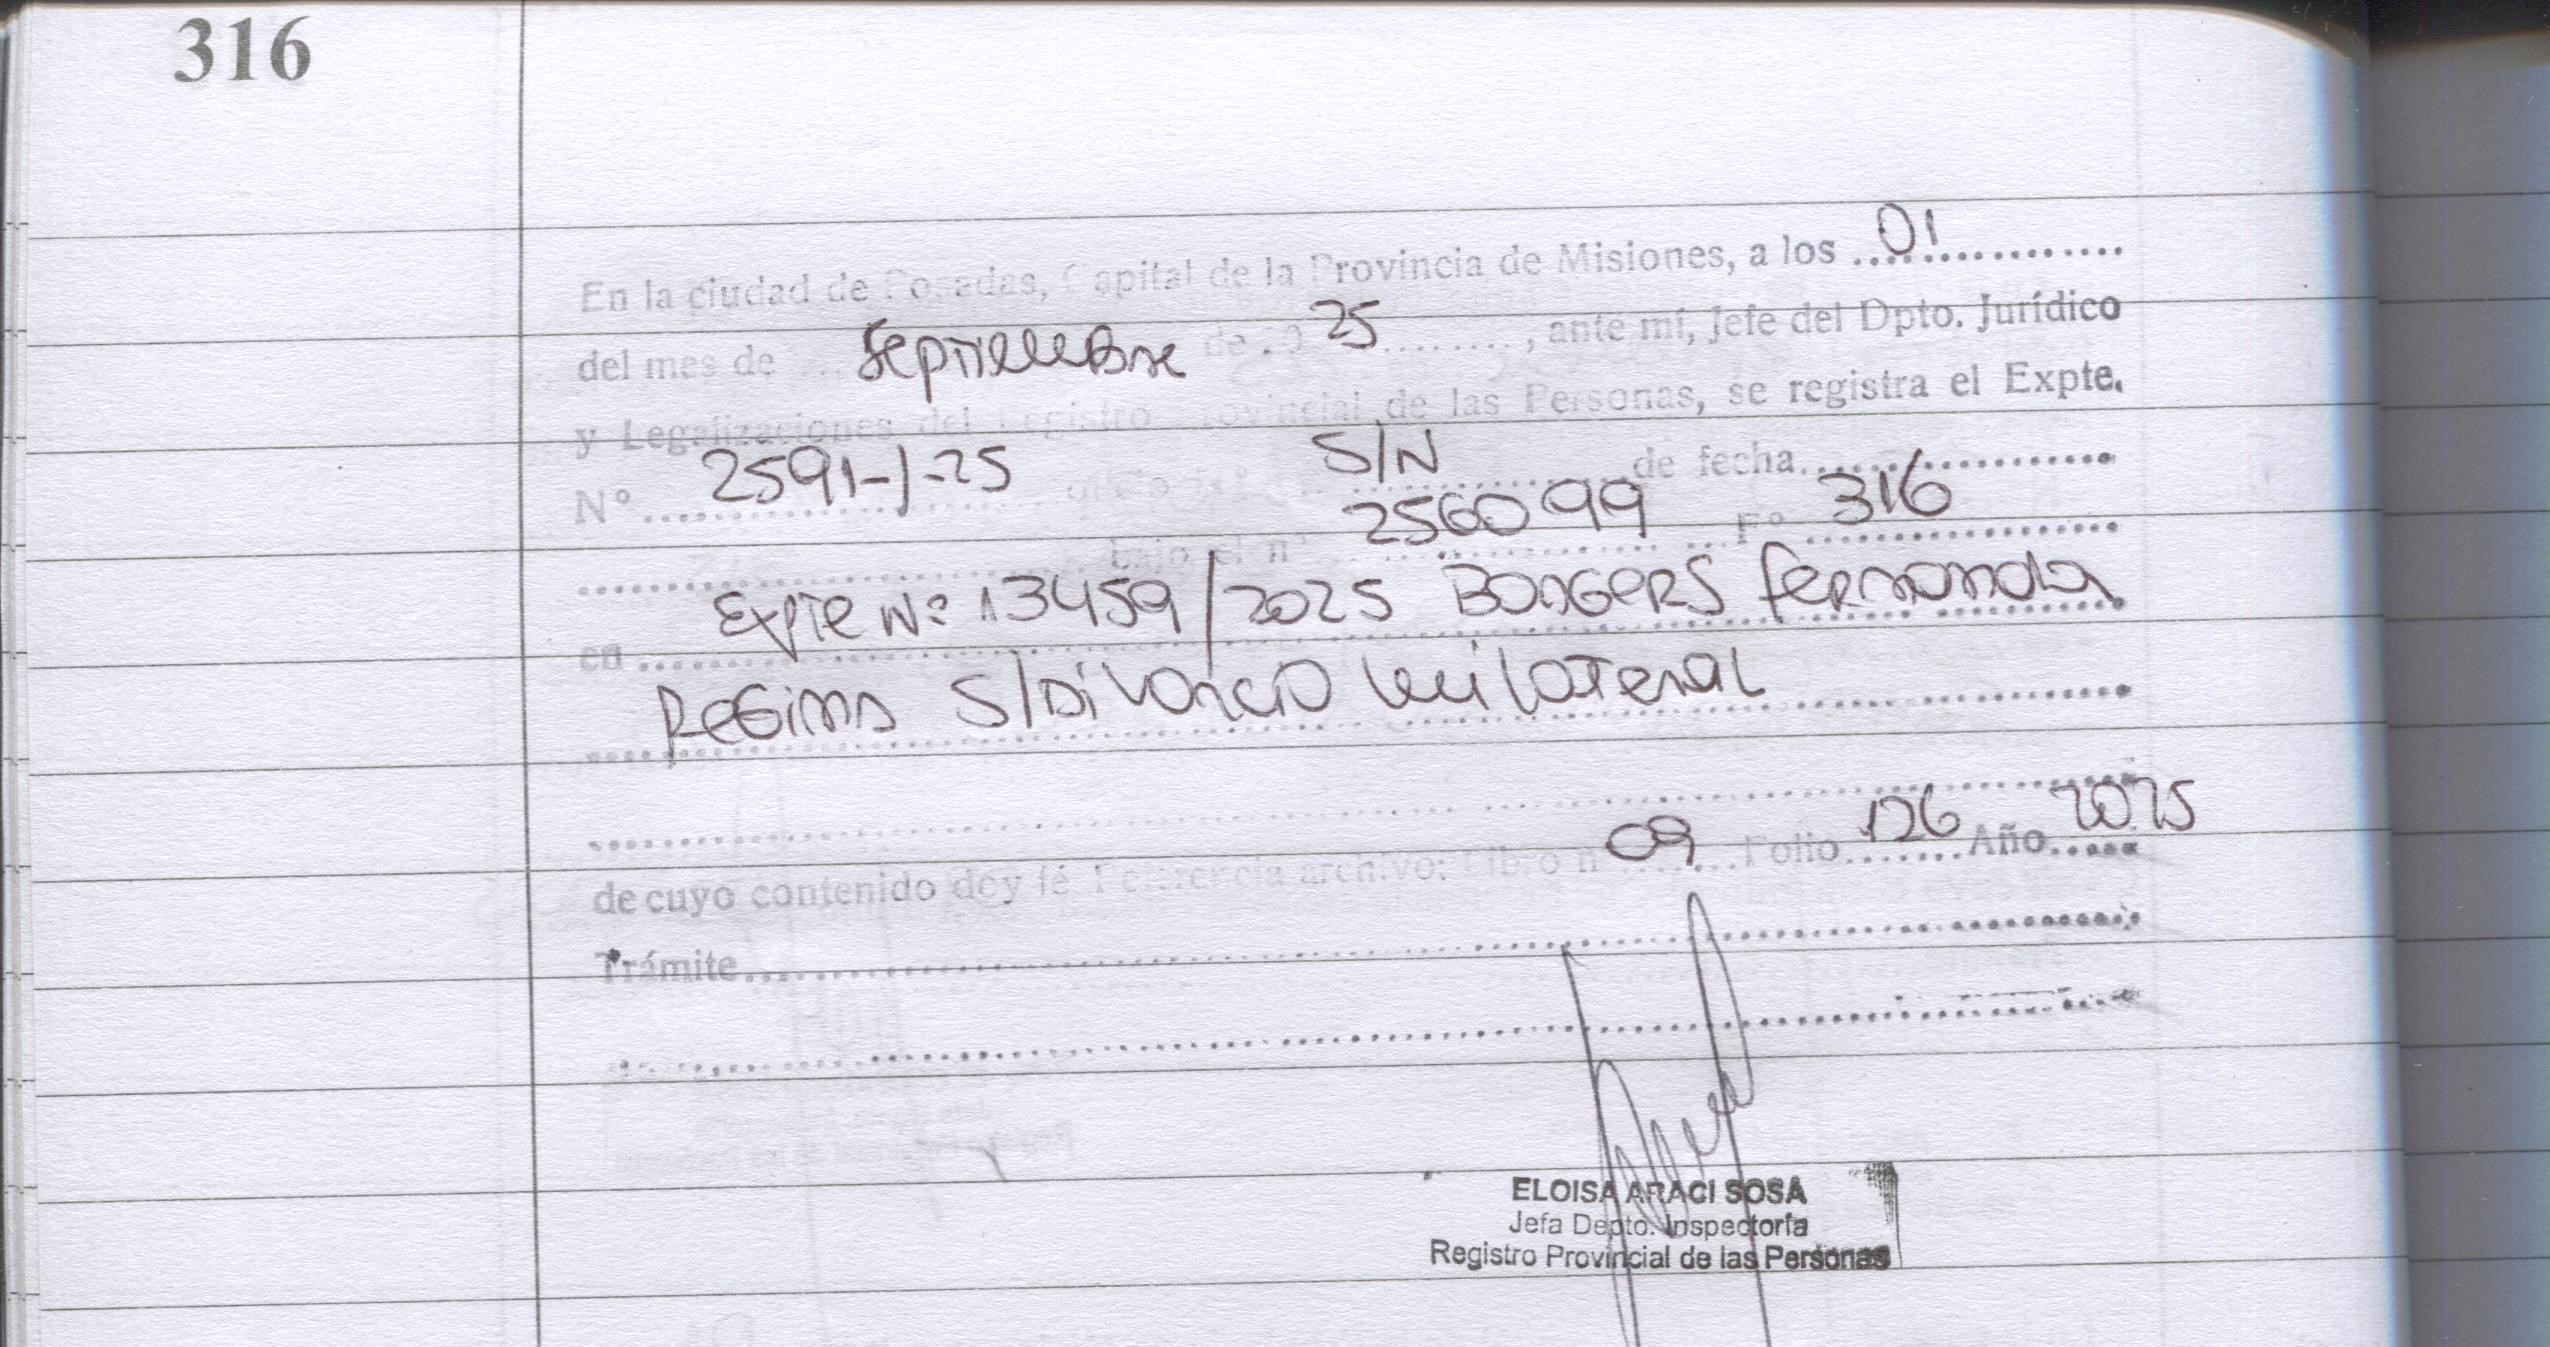 316
En la ciudad de Posadas, Capital de la Provincia de Misiones, a los 01
del mes de Septiembre de 20 25, ante mí, Jefe del Dpto. Jurídico
y Legalizaciones del Registro Provincial de las Personas, se registra el Expte.
Nº 2591-J-25 oficio Nº S/N de fecha
bajo el nº 2560 99 Fº 316
en Expte Nº 13459/2025 BONGERS Fernanda
Regina S/Divorcio Unilateral
de cuyo contenido doy fé Referencia archivo: Libro nº 09 Folio 126 Año 2025
Trámite
ELOISA ARACI SOSA
Jefa Depto. Inspectoría
Registro Provincial de las Personas